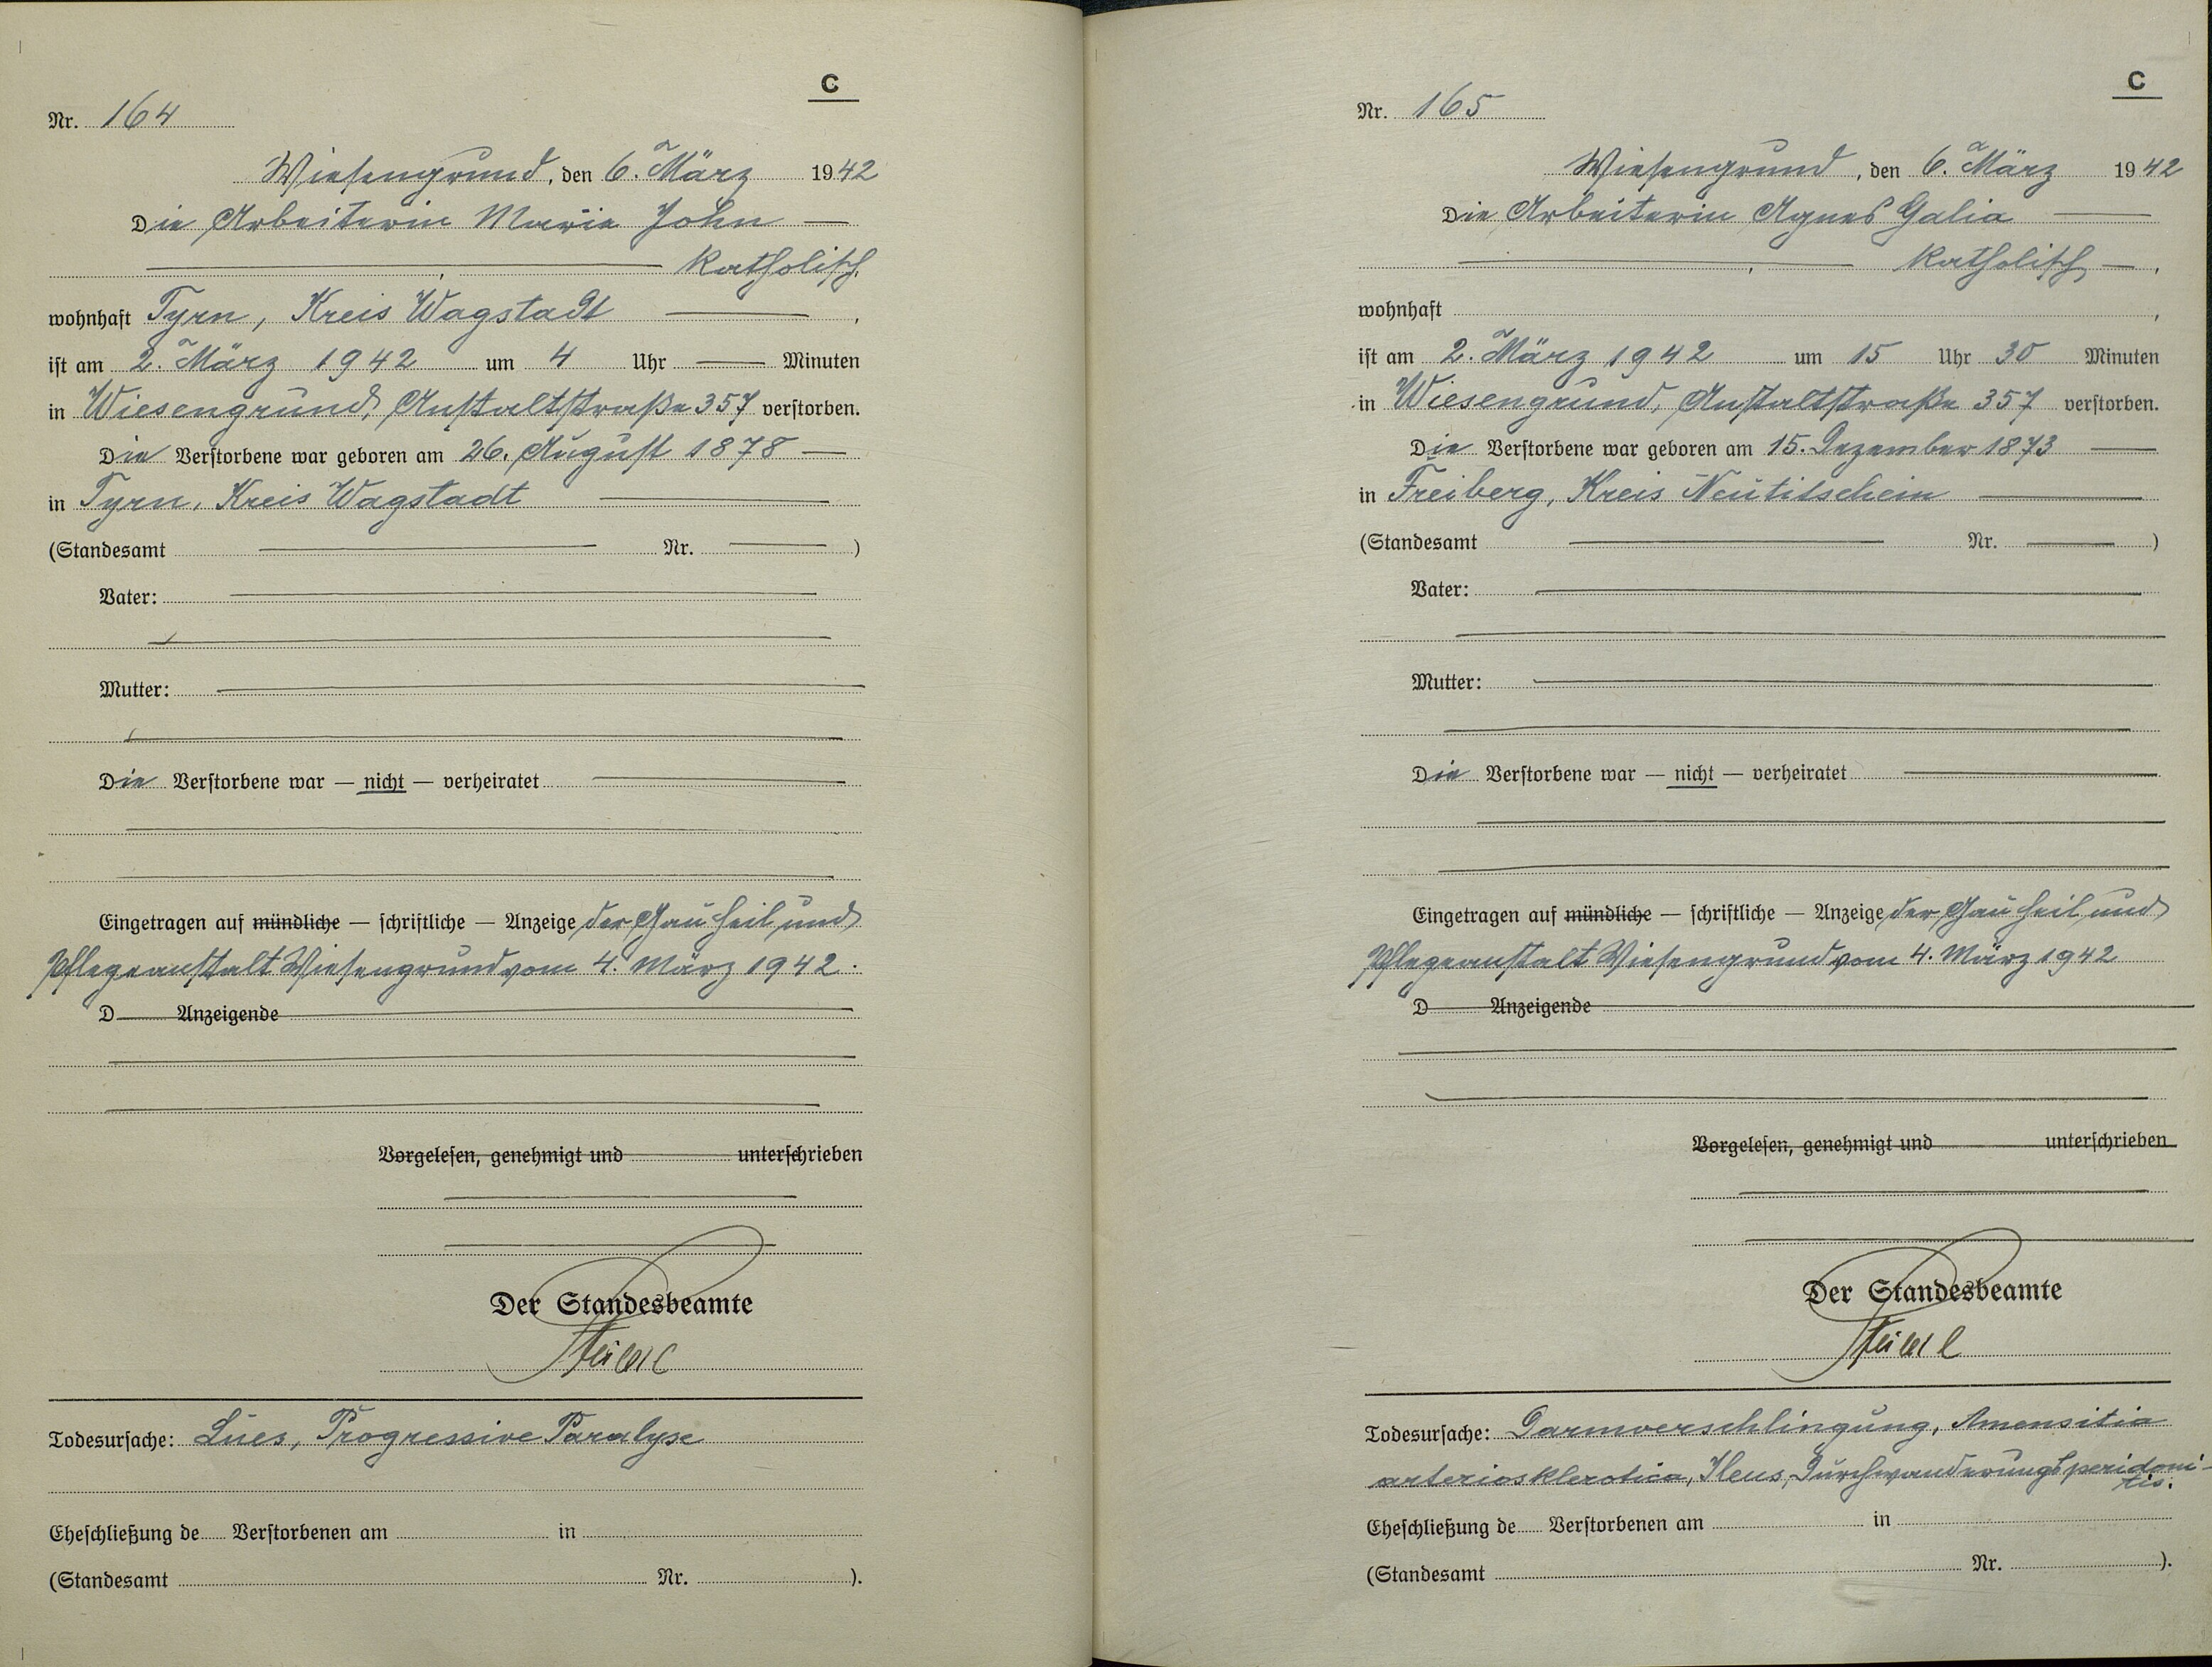 C
Nr. 164
Wiesengrund, den 6. März 1942
Die Arbeiterin Marie John
katholisch,
wohnhaft Tyrn, Kreis Wagstadt ,
ist am 2. März 1942 um 4 Uhr — Minuten
in Wiesengrund, Anstaltstraße 357 verstorben.
Die Verstorbene war geboren am 26. August 1878
in Tyrn, Kreis Wagstadt
(Standesamt — Nr. — )
Vater:
Mutter:
Die Verstorbene war — nicht — verheiratet
Eingetragen auf mündliche — schriftliche — Anzeige der Gau Heil und
Pflegeanstalt Wiesengrund vom 4. März 1942.
D Anzeigende
Vorgelesen, genehmigt und unterschrieben
Der Standesbeamte
Todesursache: Lues, Progressive Paralyse
Eheschließung de Verstorbenen am in
(Standesamt Nr. ).
C
Nr. 165
Wiesengrund, den 6. März 1942
Die Arbeiterin Agnes Galia
katholisch ,
wohnhaft ,
ist am 2. März 1942 um 15 Uhr 30 Minuten
in Wiesengrund, Anstaltstraße 357 verstorben.
Die Verstorbene war geboren am 15. Dezember 1873
in Freiberg, Kreis Neutitschein
(Standesamt — Nr. — )
Vater:
Mutter:
Die Verstorbene war — nicht — verheiratet
Eingetragen auf mündliche — schriftliche — Anzeige der Gau Heil und
Pflegeanstalt Wiesengrund vom 4. März 1942
D Anzeigende
Vorgelesen, genehmigt und unterschrieben
Der Standesbeamte
Todesursache: Darmverschlingung,
arteriosklerotica, Ileus, Durchwanderungsperidoni-
tis.
Eheschließung de Verstorbenen am in
(Standesamt Nr. ).